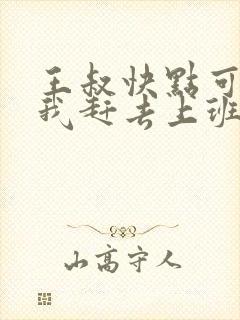 王叔快點可
我赶去上班
山高守人